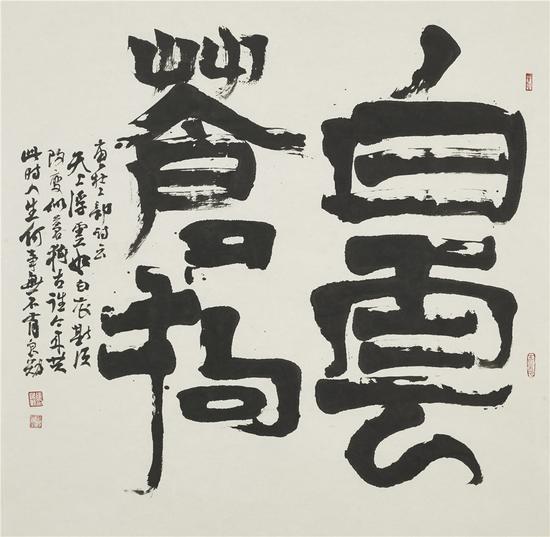 白雲
蒼狗
唐杜工部詩云
天上浮雲如白衣斯須
改變似蒼狗古往今來共
此時人生何事無不有